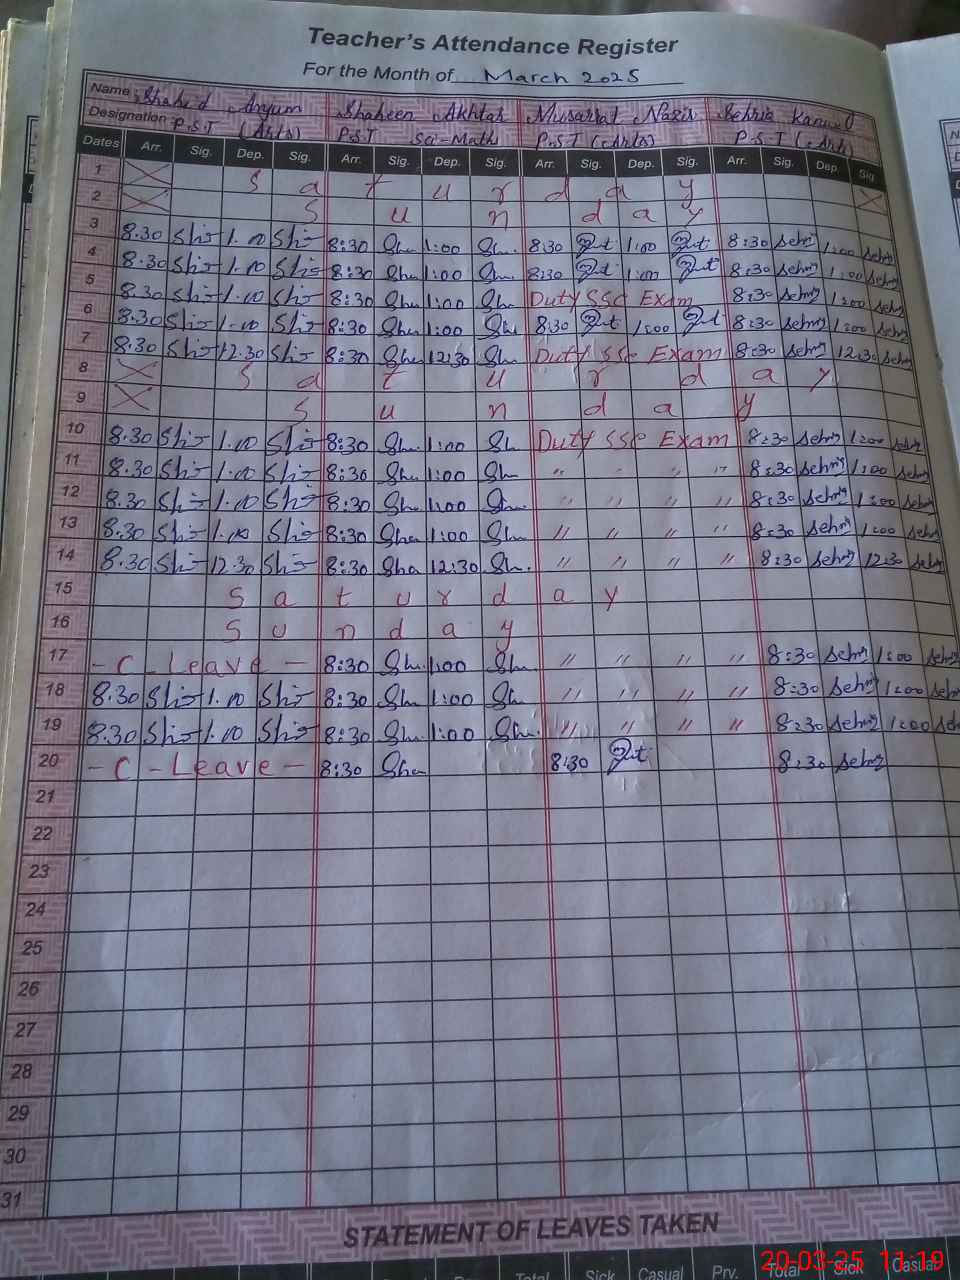 Teacher's Attendance Register
For the Month of March 2025
Name Shahid Anjum Shaheen Akhtar Musarrat Nazir Sehria Kanwal
Designation P.S.T (Arts) P.S.T Sci-Math P.S.T (Arts) P.S.T (Arts)
Dates Arr. Sig. Dep. Sig. Arr. Sig. Dep. Sig. Arr. Sig. Dep. Sig. Arr. Sig. Dep. Sig.
1 Saturday
2 Sunday
3 8.30 1.00 8:30 Sha 1:00 Sh. 8:30 1:00 8:30 Sehr 1:00 Sehr
4 8.30 1.00 8:30 Sha 1:00 Sh. 8:30 1:00 8:30 Sehr 1:00 Sehr
5 8.30 1.00 8:30 Sha 1:00 Sh Duty SSC Exam 8:30 Sehr 1:00 Sehr
6 8.30 1.00 8:30 Sha 1:00 Sh. 8:30 1:00 8:30 Sehr 1:00 Sehr
7 8.30 12.30 8:30 Sha 12:30 Sh Duty SSC Exam 8:30 Sehr 12:30 Sehr
8 Saturday
9 Sunday
10 8.30 1.00 8:30 Sh. 1:00 Sh Duty SSC Exam 8:30 Sehr 1:00 Sehr
11 8.30 1.00 8:30 Sh. 1:00 Sh " " " " 8:30 Sehr 1:00 Sehr
12 8.30 1.00 8:30 Sha 1:00 Sh " " " " 8:30 Sehr 1:00 Sehr
13 8.30 1.00 8:30 Sha 1:00 Sh. " " " " 8:30 Sehr 1:00 Sehr
14 8.30 12.30 8:30 Sha 12:30 Sh. " " " " 8:30 Sehr 12:30 Sehr
15 Saturday
16 Sunday
17 - C - Leave - 8:30 Sh. 1:00 Sh. " " " " 8:30 Sehr 1:00 Sehr
18 8.30 1.00 8:30 Sh. 1:00 Sh. " " " " 8:30 Sehr 1:00 Sehr
19 8.30 1.00 8:30 Sh. 1:00 Sh. " " " " 8:30 Sehr 1:00 Seh
20 - C - Leave - 8:30 Sha 8:30 8:30 Sehr
21
22
23
24
25
26
27
28
29
30
31
STATEMENT OF LEAVES TAKEN
Total Sick Casual Prv. Total Sick Casual
20-03-25 11:19